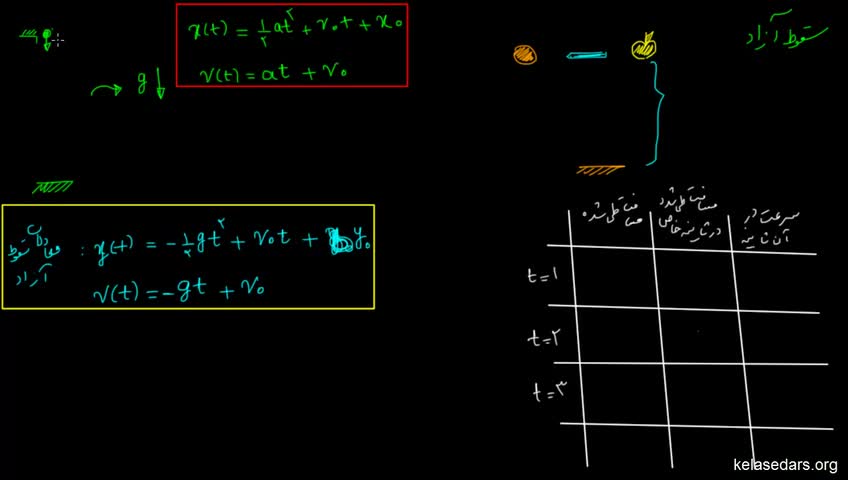 سقوط آزاد
x(t) = ½at² + v₀t + x₀
v(t) = at + v₀
g↓
معادلات سقوط آزاد : y(t) = -½gt² + v₀t + y₀
v(t) = -gt + v₀
مسافت طی شده
مسافت طی شده در ثانیه خاص
سرعت در آن ثانیه
t=۱
t=۲
t=۳
kelasedars.org